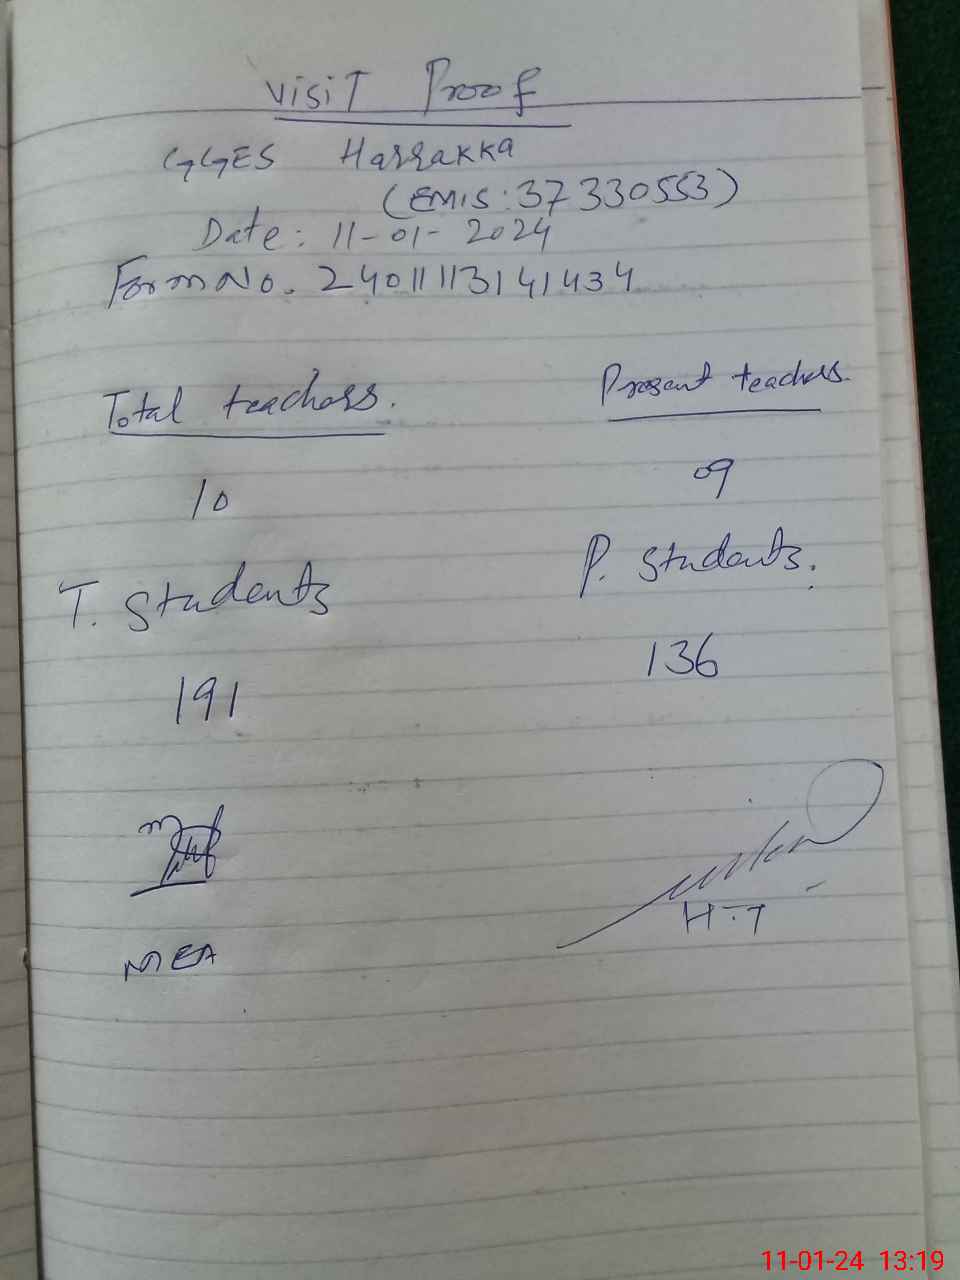 Visit Proof
GGES Harrakka
(EMIS: 37330553)
Date: 11-01-2024
Form No. 24011113141434
Total teachers. Present teachers.
10 09
T. Students P. Students.
191 136
H.T
MEA
11-01-24 13:19